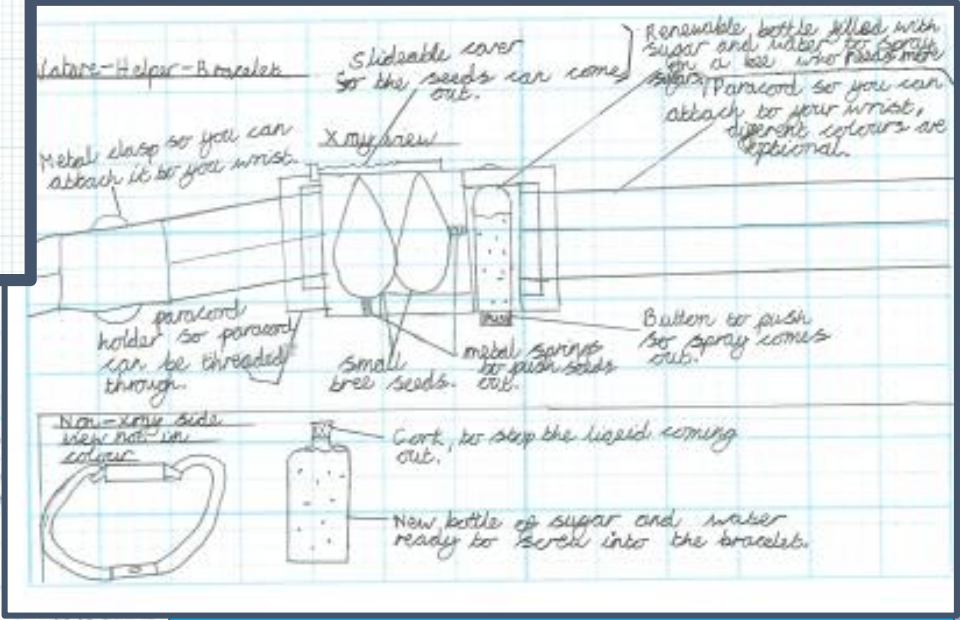 Nature-Helper-Bracelet
Slideable cover
So the seeds can come
out.
Renewable bottle filled with
sugar and water to spray
on a bee who needs more
sugar.
Paracord so you can
attach to your wrist,
different colours are
optional.
Metal clasp so you can
attach it to you wrist.
Xray view
paracord
holder so paracord
can be threaded
through.
small
tree seeds.
metal springs
to push seeds
out.
Push
Button to push
so spray comes
out.
Non-xray side
view not in
colour
Cork, to stop the liquid coming
out.
New bottle of sugar and water
ready to screw into the bracelet.